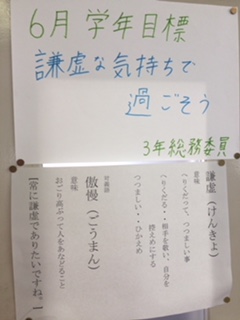 6月 学年目標
謙虚な気持ちで
過ごそう
3年総務委員
謙虚（けんきょ）
意味
へりくだって、つつましい事
へりくだる・・相手を敬い、自分を
控えめにする
つつましい・・ひかえめ
対義語
傲慢（ごうまん）
意味
おごり高ぶって人をあなどること
【常に謙虚でありたいですね。】